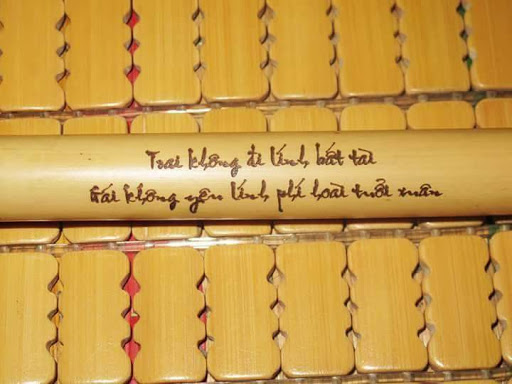 Trai không đi lính bất tài
Gái không yêu lính phí hoài tuổi xuân